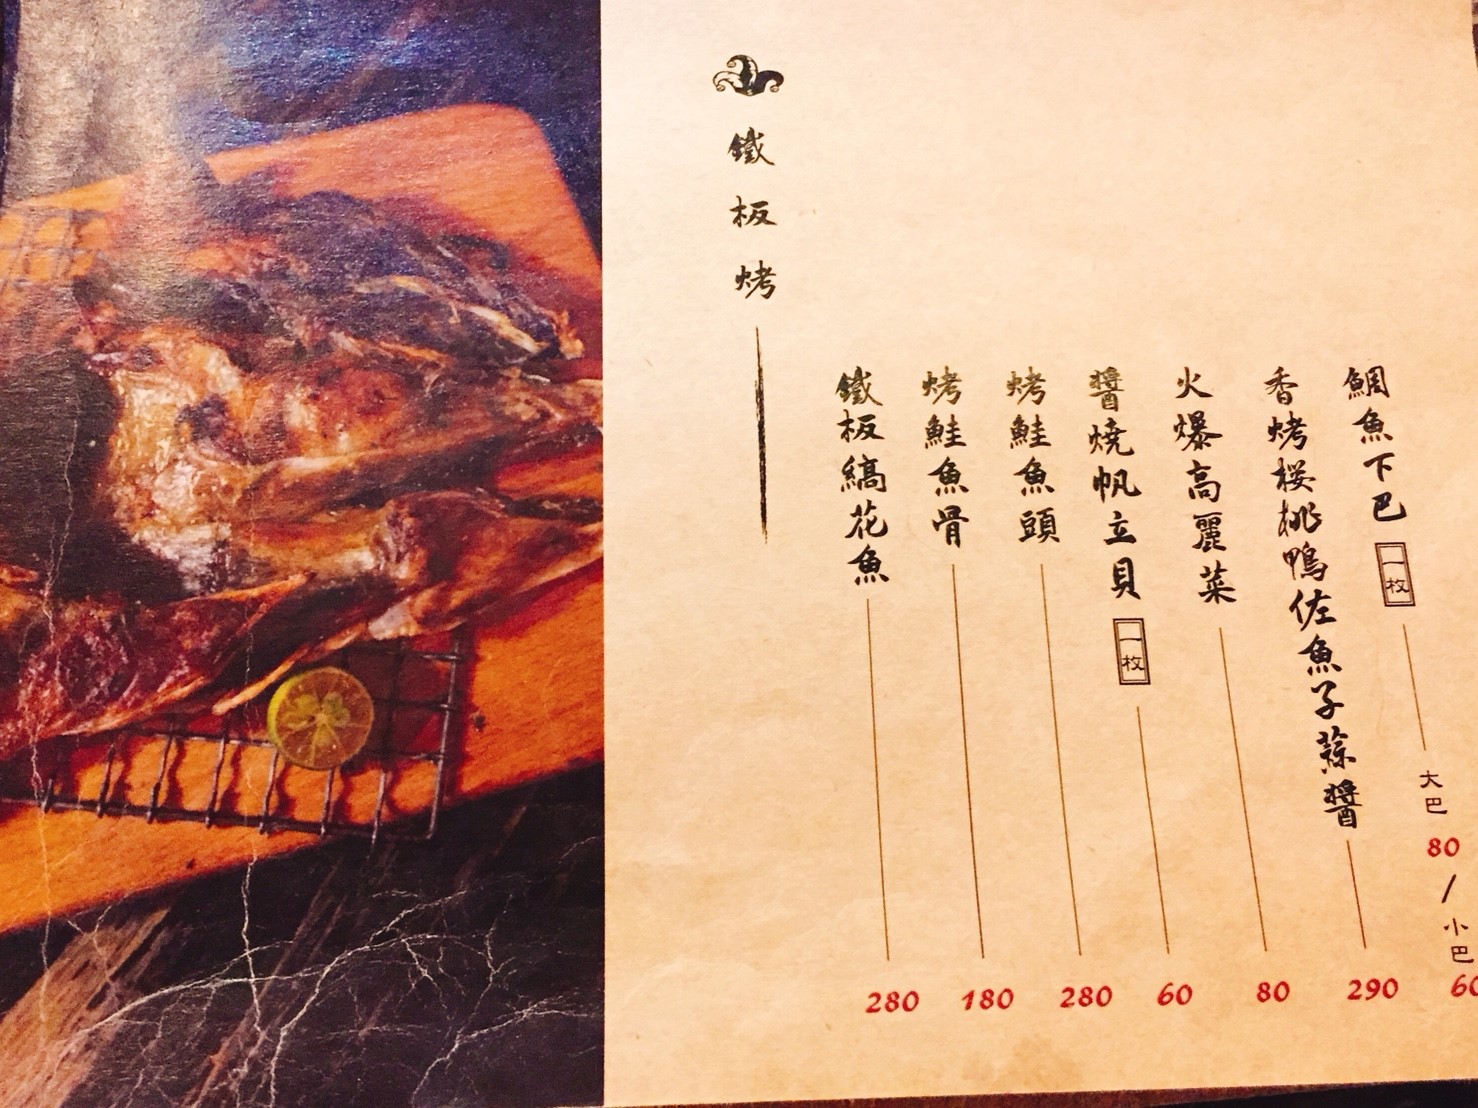 鐵板烤
鐵板縞花魚 280
烤鮭魚骨 180
烤鮭魚頭 280
醬燒帆立貝 一枚 60
火爆高麗菜 80
香烤桜桃鴨佐魚子蒜醬 290
鯛魚下巴 一枚 大巴 80 / 小巴 60